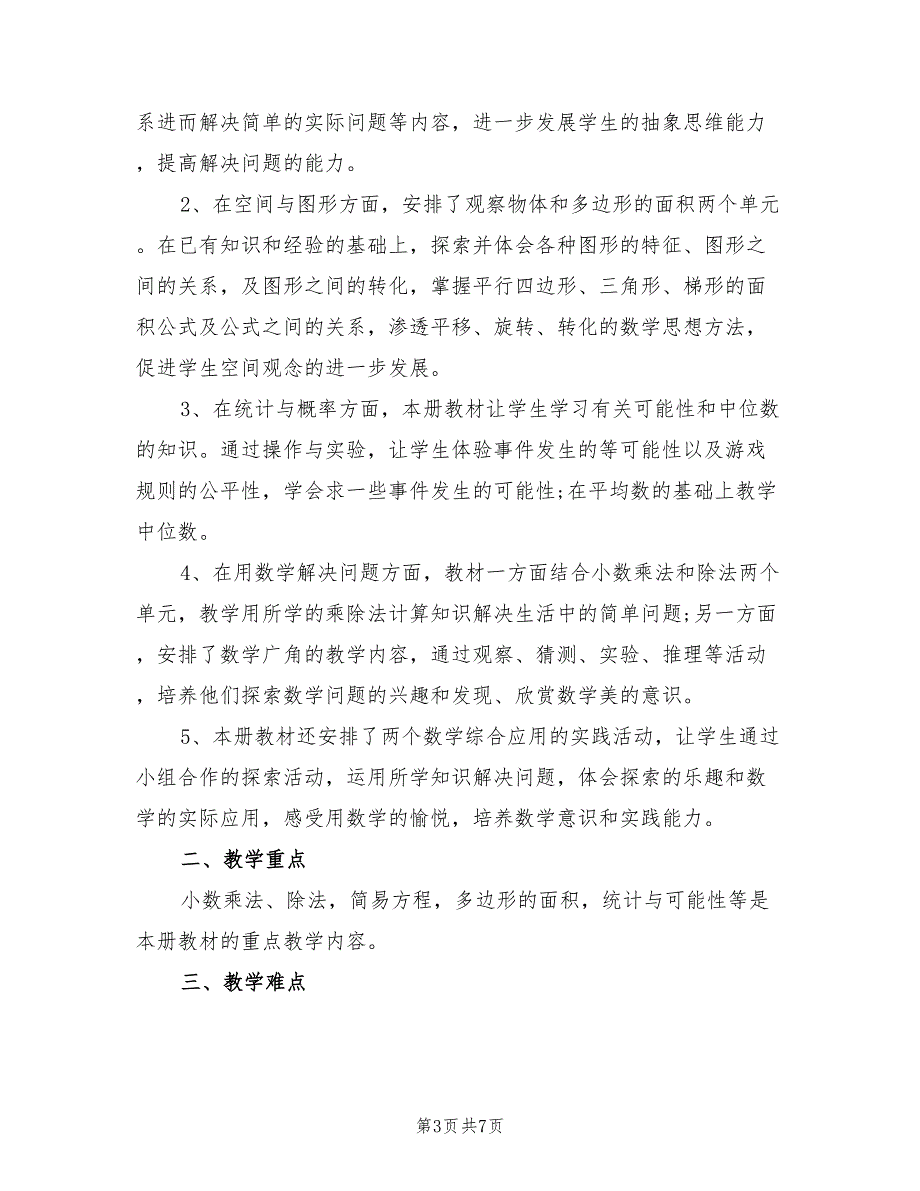 系进而解决简单的实际问题等内容，进一步发展学生的抽象思维能力
，提高解决问题的能力。
2、在空间与图形方面，安排了观察物体和多边形的面积两个单元
。在已有知识和经验的基础上，探索并体会各种图形的特征、图形之
间的关系，及图形之间的转化，掌握平行四边形、三角形、梯形的面
积公式及公式之间的关系，渗透平移、旋转、转化的数学思想方法，
促进学生空间观念的进一步发展。
3、在统计与概率方面，本册教材让学生学习有关可能性和中位数
的知识。通过操作与实验，让学生体验事件发生的等可能性以及游戏
规则的公平性，学会求一些事件发生的可能性;在平均数的基础上教学
中位数。
4、在用数学解决问题方面，教材一方面结合小数乘法和除法两个
单元，教学用所学的乘除法计算知识解决生活中的简单问题;另一方面
，安排了数学广角的教学内容，通过观察、猜测、实验、推理等活动
，培养他们探索数学问题的兴趣和发现、欣赏数学美的意识。
5、本册教材还安排了两个数学综合应用的实践活动，让学生通过
小组合作的探索活动，运用所学知识解决问题，体会探索的乐趣和数
学的实际应用，感受用数学的愉悦，培养数学意识和实践能力。
二、教学重点
小数乘法、除法，简易方程，多边形的面积，统计与可能性等是
本册教材的重点教学内容。
三、教学难点
第3页 共7页